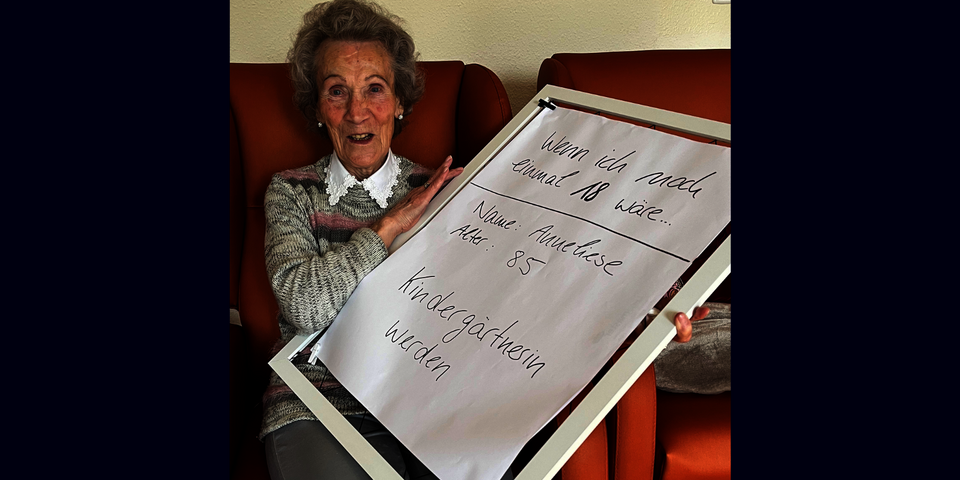 Wenn ich noch
einmal 18 wäre...
Name: Anneliese
Alter: 85
Kindergärtnerin
werden